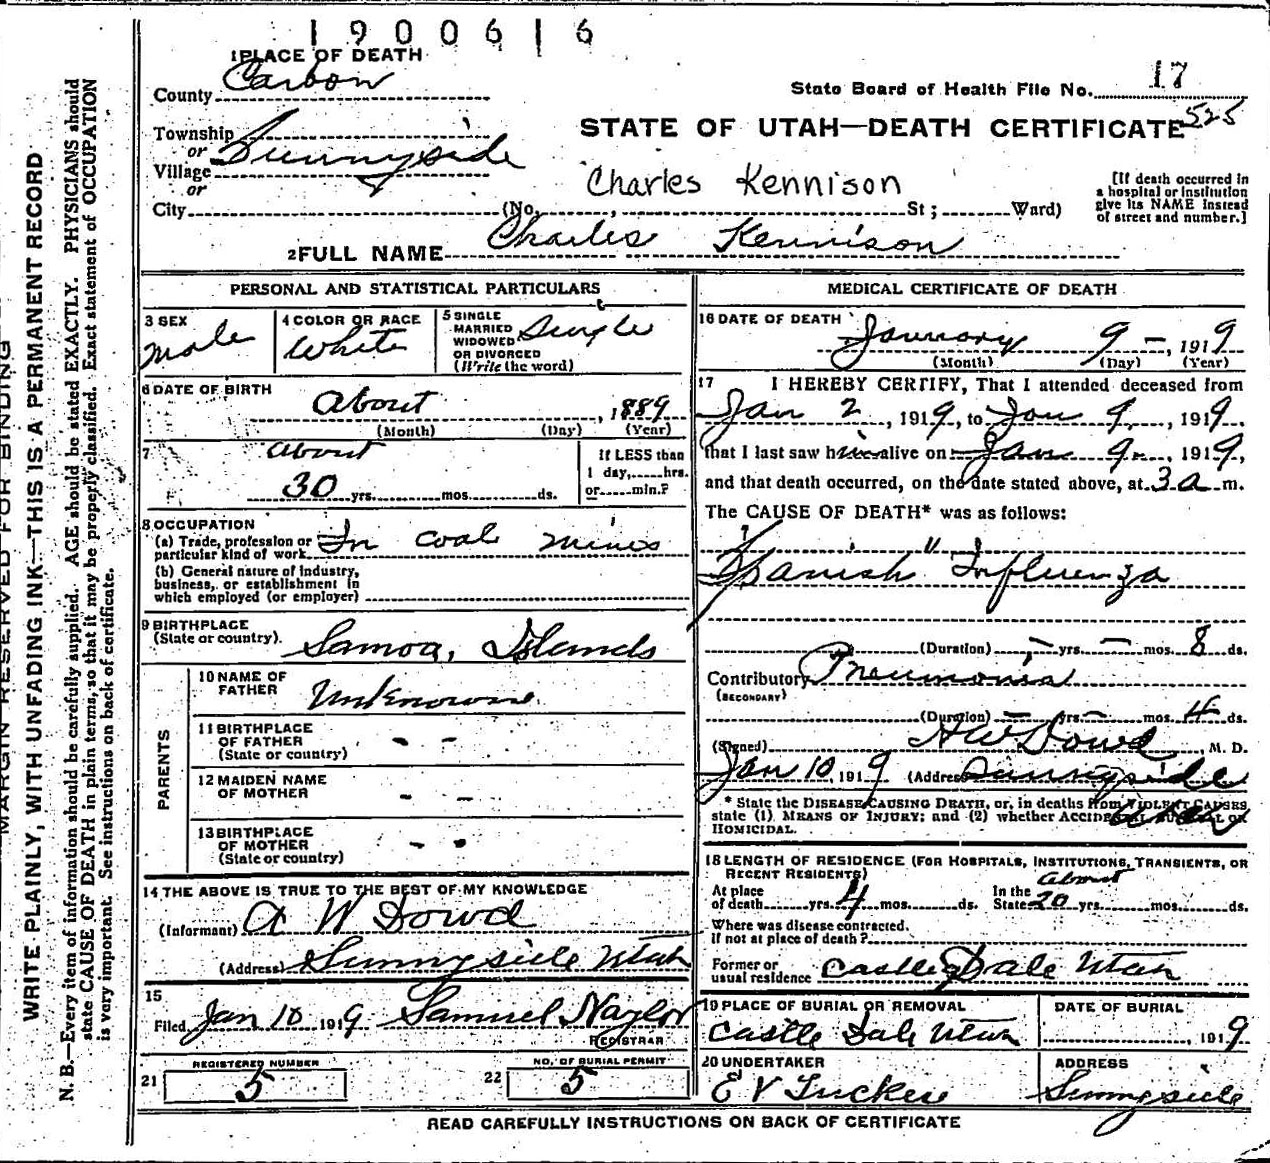 1900616
1 PLACE OF DEATH
County Carbon
State Board of Health File No. 17
525
Township
or
Village Sunnyside
or
STATE OF UTAH—DEATH CERTIFICATE
Charles Kennison
City (No. , St; Ward)
[If death occurred in
a hospital or institution
give its NAME instead
of street and number.]
2 FULL NAME Charles Kennison
PERSONAL AND STATISTICAL PARTICULARS
3 SEX
Male
4 COLOR OR RACE
White
5 SINGLE
MARRIED
WIDOWED
OR DIVORCED
(Write the word)
Single
6 DATE OF BIRTH
About , 1889
(Month) (Day) (Year)
7
About
30 yrs. mos. ds.
If LESS than
1 day, hrs.
or min.?
8 OCCUPATION
(a) Trade, profession or
particular kind of work In coal mines
(b) General nature of industry,
business, or establishment in
which employed (or employer)
9 BIRTHPLACE
(State or country). Samoa, Islands
PARENTS
10 NAME OF
FATHER Unknown
11 BIRTHPLACE
OF FATHER
(State or country) - -
12 MAIDEN NAME
OF MOTHER - -
13 BIRTHPLACE
OF MOTHER
(State or country) - -
14 THE ABOVE IS TRUE TO THE BEST OF MY KNOWLEDGE
(Informant) A W Dowd
(Address) Sunnyside Utah
15
Filed Jan 10 1919 Samuel Naylor
REGISTRAR
21 REGISTERED NUMBER
5
22 NO. OF BURIAL PERMIT
5
MEDICAL CERTIFICATE OF DEATH
16 DATE OF DEATH
January 9 -, 1919
(Month) (Day) (Year)
17 I HEREBY CERTIFY, That I attended deceased from
Jan 2, 1919, to Jan 9, 1919,
that I last saw him alive on Jan 9, 1919,
and that death occurred, on the date stated above, at 3 a m.
The CAUSE OF DEATH* was as follows:
"Spanish" Influenza
(Duration) - yrs. - mos. 8 ds.
Contributory Pneumonia
(SECONDARY)
(Duration) - yrs. - mos. 4 ds.
(Signed) A W Dowd, M. D.
Jan 10, 1919 (Address) Sunnyside
Utah
* State the DISEASE CAUSING DEATH, or, in deaths from VIOLENT CAUSES
state (1) MEANS OF INJURY; and (2) whether ACCIDENTAL, SUICIDAL OR
HOMICIDAL.
18 LENGTH OF RESIDENCE (FOR HOSPITALS, INSTITUTIONS, TRANSIENTS, OR
RECENT RESIDENTS)
About
At place
of death yrs. 4 mos. ds.
In the
State 20 yrs. mos. ds.
Where was disease contracted.
if not at place of death?
Former or
usual residence Castle Dale Utah
19 PLACE OF BURIAL OR REMOVAL
Castle Dale Utah
DATE OF BURIAL
, 1919
20 UNDERTAKER
E V Tucker
ADDRESS
Sunnyside
READ CAREFULLY INSTRUCTIONS ON BACK OF CERTIFICATE
MARGIN RESERVED FOR BINDING
WRITE PLAINLY, WITH UNFADING INK—THIS IS A PERMANENT RECORD
N. B.—Every item of information should be carefully supplied. AGE should be stated EXACTLY. PHYSICIANS should
state CAUSE OF DEATH in plain terms, so that it may be properly classified. Exact statement of OCCUPATION
is very important. See instructions on back of certificate.